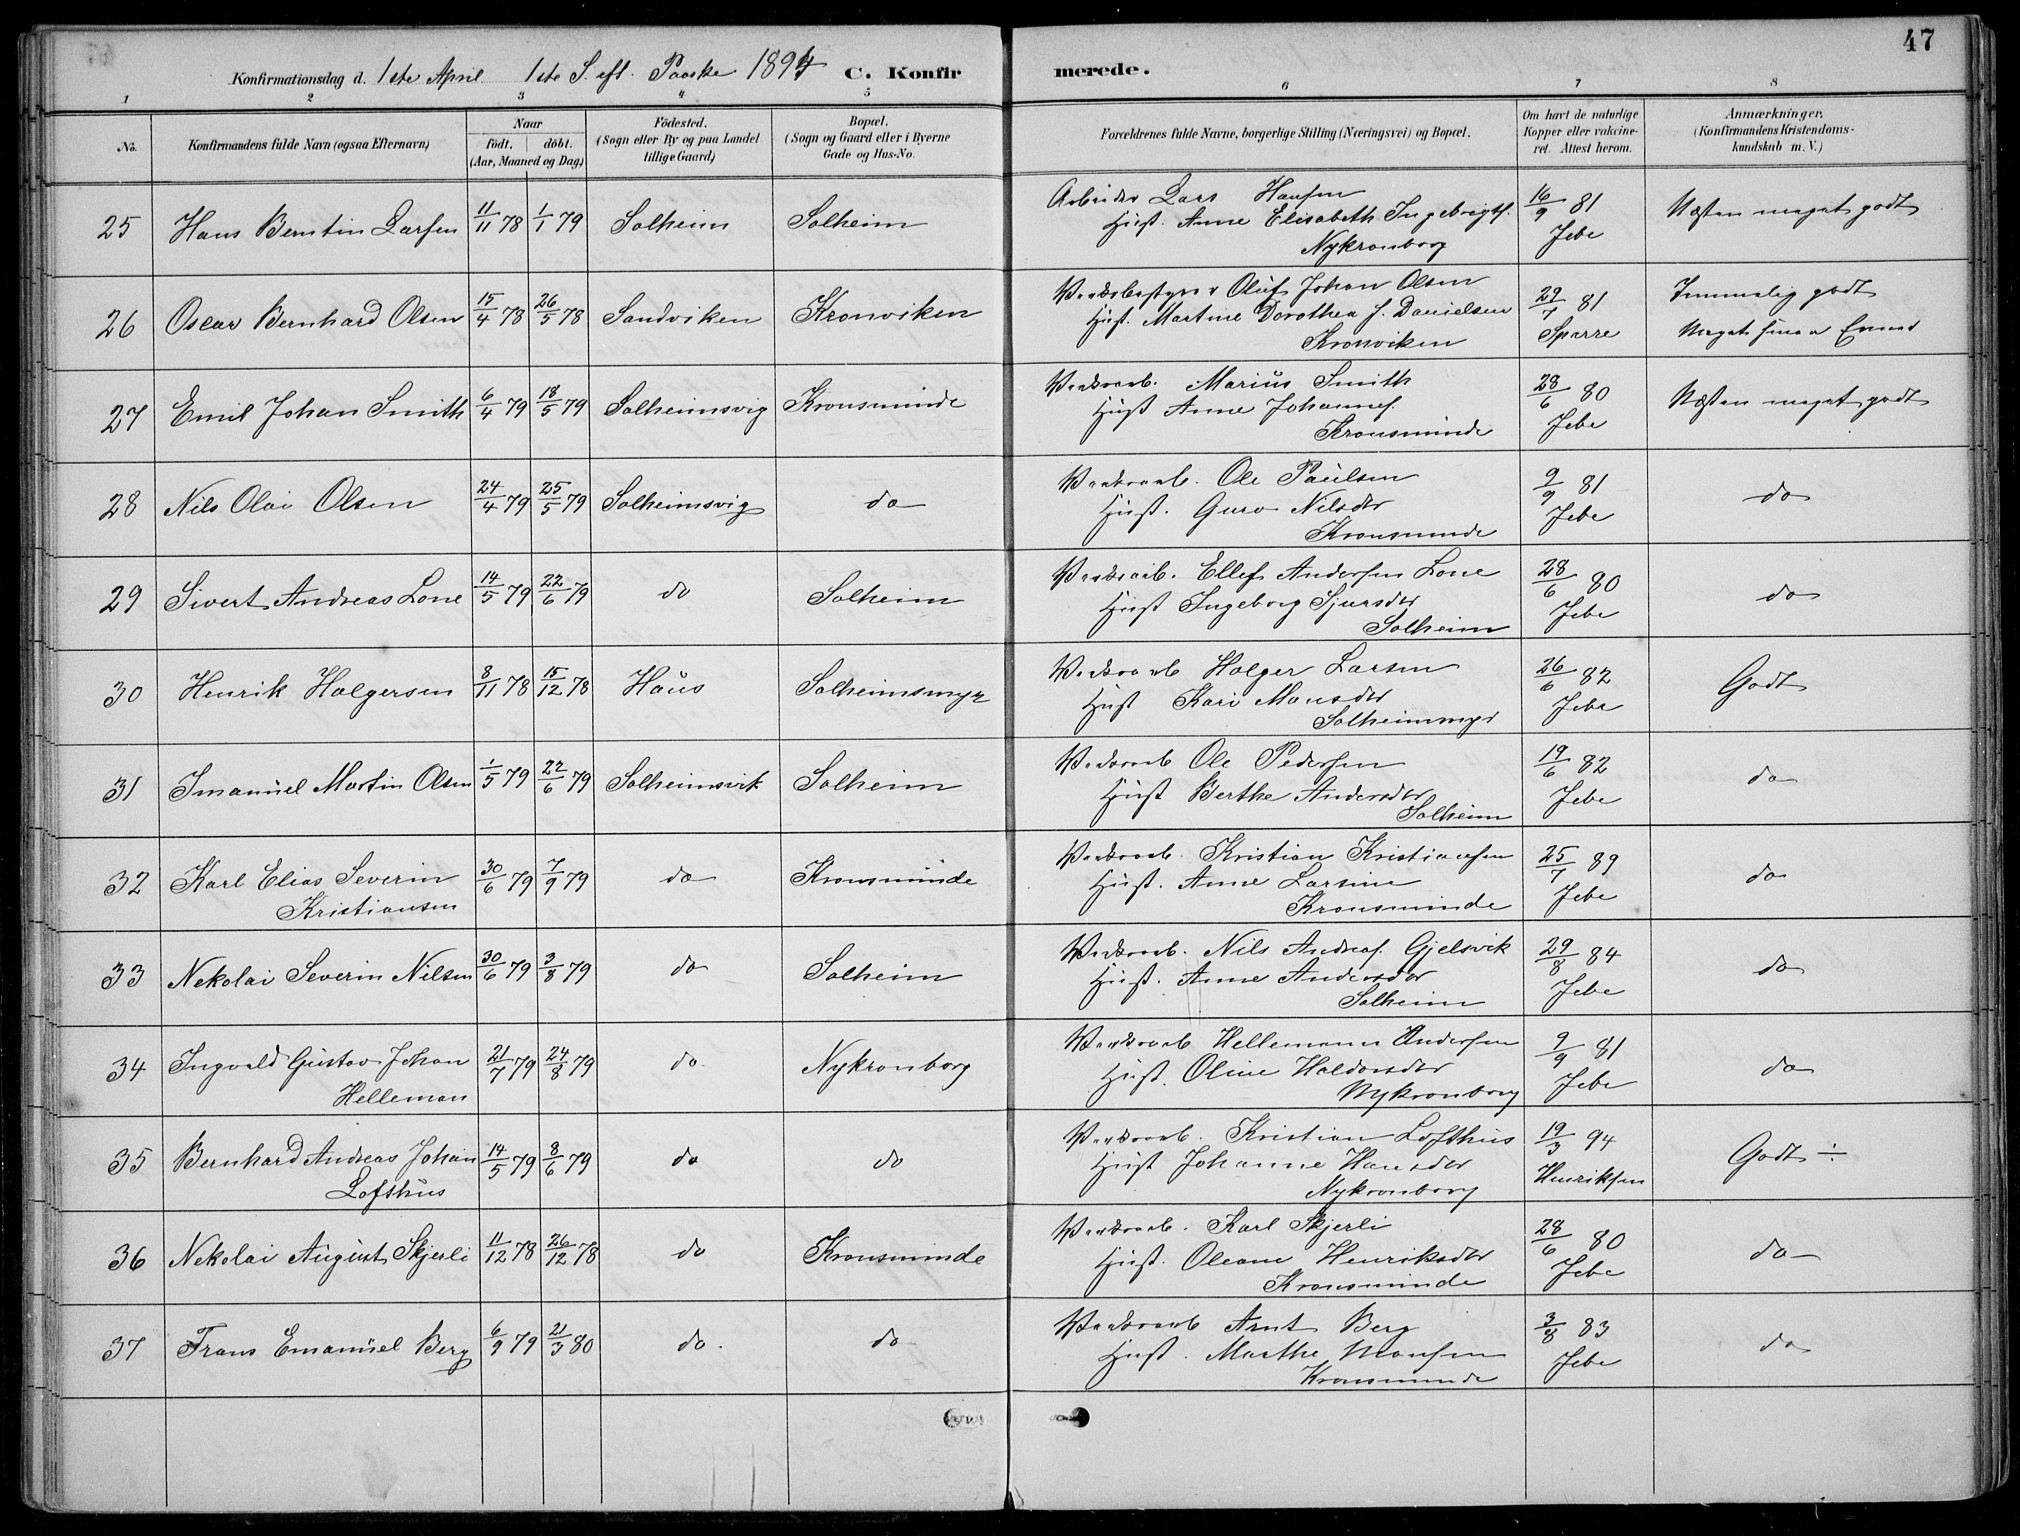 47
Konfirmationsdag d. 1ste April 1ste S. eft. Paaske 1894 C. Konfirmerede.
1 2 3 4 5 6 7 8
No.
Konfirmandens fulde Navn (ogsaa Efternavn)
Naar
födt. döbt.
(Aar, Maaned og Dag)
Födested.
(Sogn eller By og paa Landet
tillige Gaard)
Bopæl.
(Sogn og Gaard eller i Byerne
Gade og Hus-No.
Forældrenes fulde Navne, borgerlige Stilling (Næringsvei) og Bopæl.
Om havt de naturlige
Kopper eller vakcine-
ret. Attest herom.
Anmærkninger.
(Konfirmandens Kristendoms-
kundskab m. V.)
25 Hans Berntin Larsen 11/11 78 1/1 79 Solheim Solheim
Arbeider Lars Hansen
Hust. Anne Elisabeth Ingebrigtf.
Nykronborg
16/9 81
Jebe
Næsten meget godt
26 Oscar Bernhard Olsen 15/4 78 26/5 78 Sandviken Kronviken
Værksbestyrer Oluf Johan Olsen
Hust. Martine Dorothea f. Danielsen
Kronviken
29/7 81
Sparre
Temmelig godt
Meget
27 Emil Johan Smith 6/4 79 18/5 79 Solheimsvig Kronsminde
Værksarb. Marius Smith
Hust Anne Johannef.
Kronsminde
28/6 80
Jebe
Næsten meget godt
28 Nils Olai Olsen 24/4 79 25/5 79 Solheimsvig do
Værksarb. Ole Paulsen
Hust. Guro Nilsdtr
Kronsminde
9/9 81
Jebe
do
29 Sivert Andreas Lone 14/5 79 22/6 79 do Solheim
Værksarb. Ellef Andersen Lone
Hust Ingeborg Sjursdtr
Solheim
28/6 80
Jebe
do
30 Henrik Holgersen 8/11 78 15/12 78 Haus Solheimsmyr
Værksarb Holger Larsen
Hust Kari Monsdtr
Solheimmyr
26/6 82
Jebe
Godt
31 Imanuel Martin Olsen 1/5 79 22/6 79 Solheimsvik Solheim
Værksarb Ole Pedersen
Hust Berthe Andersdtr
Solheim
19/6 82
Jebe
do
32 Karl Elias Severin
Kristiansen 30/6 79 7/9 79 do Kronsminde
Værksarb. Kristian Kristiansen
Hust. Anne Larsine
Kronsminde
25/7 89
Jebe
do
33 Nekolai Severin Nilsen 30/6 79 3/8 79 do Solheim
Værksarb. Nils Andreas. Gjelsvik
Hust. Anne Andersdtr
Solheim
29/8 84
Jebe
do
34 Ingvald Gustav Johan
Helleman 21/7 79 24/8 79 do Nykronborg
Værksarb Hellemann Andersen
Hust. Oline Haldorsdtr
Nykronborg
9/9 81
Jebe
do
35 Bernhard Andreas Johan
Lofthus 14/5 79 8/6 79 do do
Værksarb. Kristian Lofthus
Hust Johanne Hansdtr
Nykronborg
19/3 94
Henriksen
Godt ÷
36 Nekolai August Skjerli 11/12 78 26/12 78 do Kronsminde
Værksarb. Karl Skjerli
Hust. Oleane Henriksdtr
Kronsminde
28/6 80
Jebe
do
37 Frans Emanuel Berg 6/9 79 21/3 80 do do
Værksarb Arnt Berg
Hust. Marthe Monsen
Kronsminde
3/8 83
Jebe
do